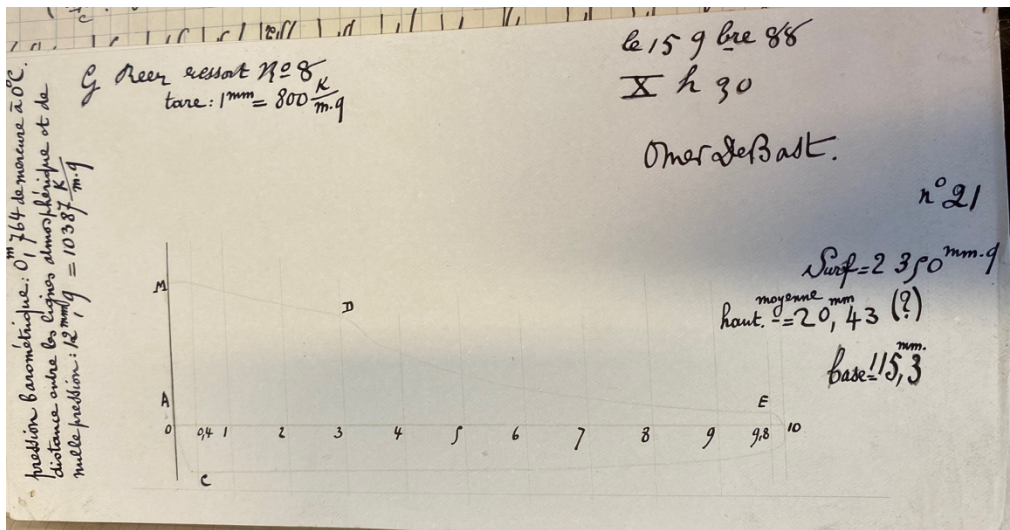 pression barométrique: 0,764 de mercure à 0°C.
m
distance entre les lignes atmosphérique et de
nulle pression: 12mm,9 = 10387 K/m.q
G Beer ressort No 8
tare: 1mm = 800 K/m.q
le 15 9 bre 88
X h 30
Omer DeBast.
n° 21
Surf = 2350 mm.q
moyenne
haut. = 20,43 (?)
mm
base = 115,3
mm.
M
D
A
E
0 0,4 1 2 3 4 5 6 7 8 9 9,8 10
C